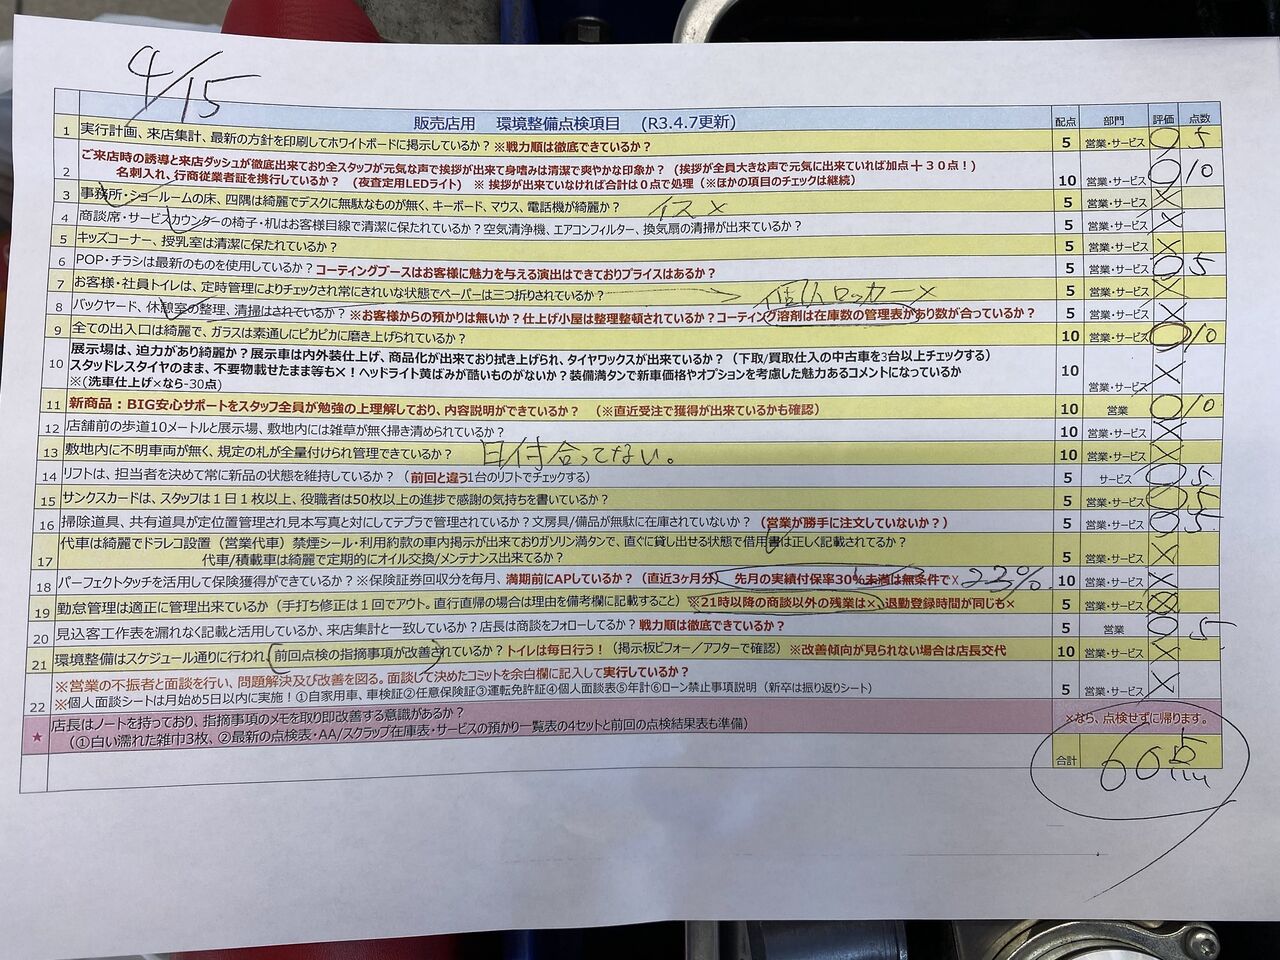 4/15
販売店用 環境整備点検項目 (R3.4.7更新) 配点 部門 評価 点数
1 実行計画、来店集計、最新の方針を印刷してホワイトボードに掲示しているか？※戦力順は徹底できているか？ 5 営業・サービス ○ 5
2 ご来店時の誘導と来店ダッシュが徹底出来ており全スタッフが元気な声で挨拶が出来て身嗜みは清潔で爽やかな印象か？（挨拶が全員大きな声で元気に出来ていれば加点＋３０点！）
名刺入れ、行商従業者証を携行しているか？（夜査定用LEDライト） ※ 挨拶が出来ていなければ合計は０点で処理（※ほかの項目のチェックは継続） 10 営業・サービス ○ 10
3 事務所・ショールームの床、四隅は綺麗でデスクに無駄なものが無く、キーボード、マウス、電話機が綺麗か？ イス × 5 営業・サービス ×
4 商談席・サービスカウンターの椅子・机はお客様目線で清潔に保たれているか？空気清浄機、エアコンフィルター、換気扇の清掃が出来ているか？ 5 営業・サービス ×
5 キッズコーナー、授乳室は清潔に保たれているか？ 5 営業・サービス ×
6 POP・チラシは最新のものを使用しているか？コーティングブースはお客様に魅力を与える演出はできておりプライスはあるか？ 5 営業・サービス ○ 5
7 お客様・社員トイレは、定時管理によりチェックされ常にきれいな状態でペーパーは三つ折りされているか？ → 個人ロッカー× 5 営業・サービス ×
8 バックヤード、休憩室の整理、清掃はされているか？※お客様からの預かりは無いか？仕上げ小屋は整理整頓されているか？コーティング溶剤は在庫数の管理表があり数が合っているか？ 5 営業・サービス ×
9 全ての出入口は綺麗で、ガラスは素通しにピカピカに磨き上げられているか？ 10 営業・サービス ○ 10
10 展示場は、迫力があり綺麗か？展示車は内外装仕上げ、商品化が出来ており拭き上げられ、タイヤワックスが出来ているか？（下取/買取仕入の中古車を3台以上チェックする）
スタッドレスタイヤのまま、不要物載せたまま等も×！ヘッドライト黄ばみが酷いものがないか？装備満タンで新車価格やオプションを考慮した魅力あるコメントになっているか
※(洗車仕上げ×なら-30点) 10 営業・サービス ×
11 新商品：BIG安心サポートをスタッフ全員が勉強の上理解しており、内容説明ができているか？（※直近受注で獲得が出来ているかも確認） 10 営業 ○ 10
12 店舗前の歩道10メートルと展示場、敷地内には雑草が無く掃き清められているか？ 10 営業・サービス ×
13 敷地内に不明車両が無く、規定の札が全量付けられ管理できているか？ 日付合ってない。 10 営業・サービス ×
14 リフトは、担当者を決めて常に新品の状態を維持しているか？（前回と違う1台のリフトでチェックする） 5 サービス ○ 5
15 サンクスカードは、スタッフは１日１枚以上、役職者は50枚以上の進捗で感謝の気持ちを書いているか？ 5 営業・サービス ○ 5
16 掃除道具、共有道具が定位置管理され見本写真と対にしてテプラで管理されているか？文房具/備品が無駄に在庫されていないか？（営業が勝手に注文していないか？） 5 営業・サービス ○ 5
17 代車は綺麗でドラレコ設置（営業代車）禁煙シール・利用約款の車内掲示が出来ておりガソリン満タンで、直ぐに貸し出せる状態で借用書は正しく記載されてるか？
代車/積載車は綺麗で定期的にオイル交換/メンテナンス出来てるか？ 5 営業・サービス ×
18 パーフェクトタッチを活用して保険獲得ができているか？※保険証券回収分を毎月、満期前にAPしているか？（直近3ヶ月分） 先月の実績付保率30%未満は無条件で× 22% 10 営業・サービス ×
19 勤怠管理は適正に管理出来ているか（手打ち修正は１回でアウト。直行直帰の場合は理由を備考欄に記載すること）※21時以降の商談以外の残業は×、退勤登録時間が同じも× 5 営業・サービス ×
20 見込客工作表を漏れなく記載と活用しているか、来店集計と一致しているか？店長は商談をフォローしてるか？戦力順は徹底できているか？ 5 営業 ○ 5
21 環境整備はスケジュール通りに行われ、前回点検の指摘事項が改善されているか？トイレは毎日行う！（掲示板ビフォー／アフターで確認）※改善傾向が見られない場合は店長交代 10 営業・サービス ×
22 ※営業の不振者と面談を行い、問題解決及び改善を図る。面談して決めたコミットを余白欄に記入して実行しているか？
※個人面談シートは月始め5日以内に実施！①自家用車、車検証②任意保険証③運転免許証④個人面談表⑤年計⑥ローン禁止事項説明（新卒は振り返りシート） 5 営業・サービス ×
★ 店長はノートを持っており、指摘事項のメモを取り即改善する意識があるか？
（①白い濡れた雑巾3枚、②最新の点検表・AA/スクラップ在庫表・サービスの預かり一覧表の4セットと前回の点検結果表も準備） ×なら、点検せずに帰ります。
合計 60